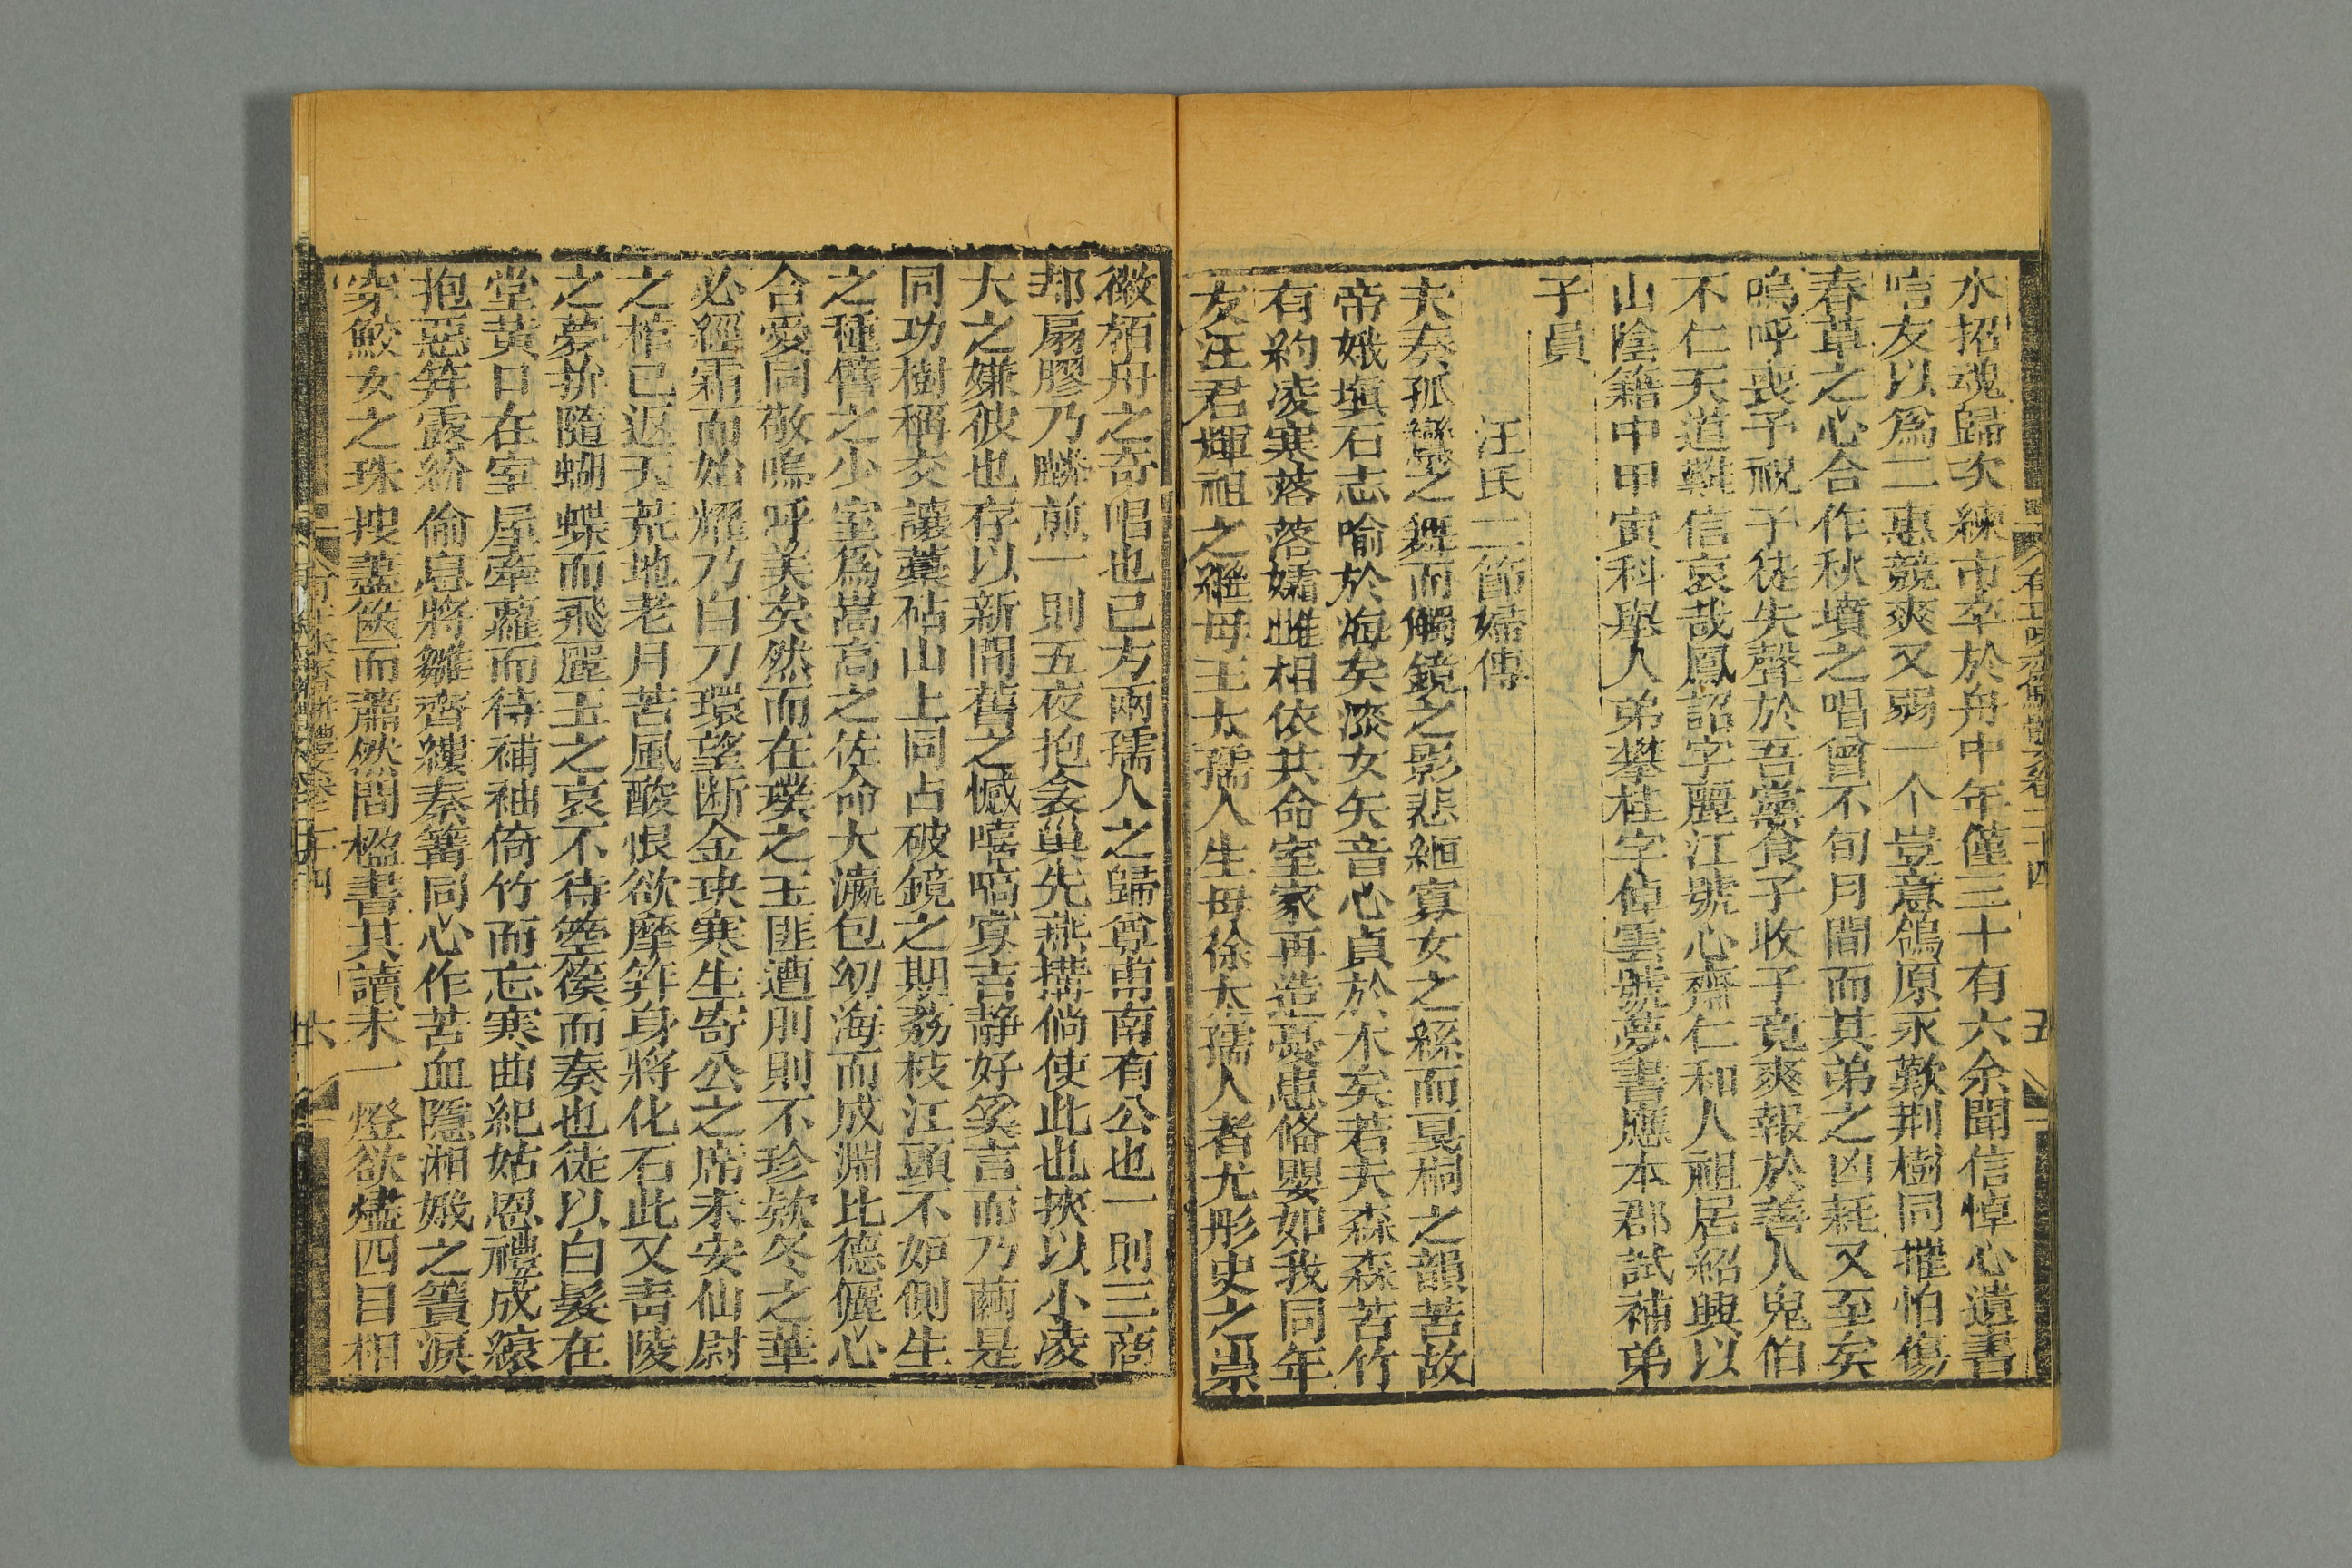 水招魂歸次練市卒於舟中年僅三十有六余聞信悼心遺書
唁友以爲二惠競爽又弱一个豈意鴒原永歎荆樹同摧怕傷
春草之心合作秋墳之唱曾不旬月間而其弟之凶耗又至矣
嗚呼喪予祝予徒失聲於吾黨食子收子竟爽報於善人鬼伯
不仁天道難信哀哉鳳詔字麗江號心齋仁和人祖居紹興以
山陰籍中甲寅科舉人弟攀桂字倬雲號夢書應本郡試補弟
子員
汪氏二節婦傳
夫奏孤鸞之舞而觸鏡之影悲絙寡女之絲而戛桐之韻苦故
帝娥塡石志喻於海矣漆女矢音心貞於木矣若夫森森苦竹
有約凌寒落落孀雌相依共命室家再造憂患偹嬰如我同年
友汪君煇祖之繼母王太孺人生母徐太孺人者尤彤史之祟
徽栢舟之奇唱也已方兩孺人之歸尊甫南有公也一則三商
邦扇膠乃麟煎一則五夜抱衾巢先燕搆倘使此也挾以小凌
大之嫌彼也存以新間舊之憾嘻嗃寡吉静好奚言而乃繭是
同功樹稱交讓藁砧山上同占破鏡之期荔枝江頭不妒側生
之種僃之少室爲嵩高之佐命大瀛包幼海而成淵比德儷心
合愛同敬嗚呼美矣然而在璞之玉匪遭刖則不珍欵冬之華
必經霜而始燿乃白刀環望断金玦寒生寄公之席未安仙尉
之柩已返天荒地老月苦風酸恨欲摩筓身將化石此又靑陵
之夢拚隨蝴蝶而飛麗玉之哀不待箜篌而奏也徒以白髮在
堂黃口在室屋牽蘿而待補袖倚竹而忘寒曲紀姑恩禮成縗
抱惡筓露紒偷息將雛齊縷奏篝同心作苦血隱湘娥之簀淚
穿鮫女之珠搜盡篋而蕭然問楹書其讀未一燈欲燼四目相